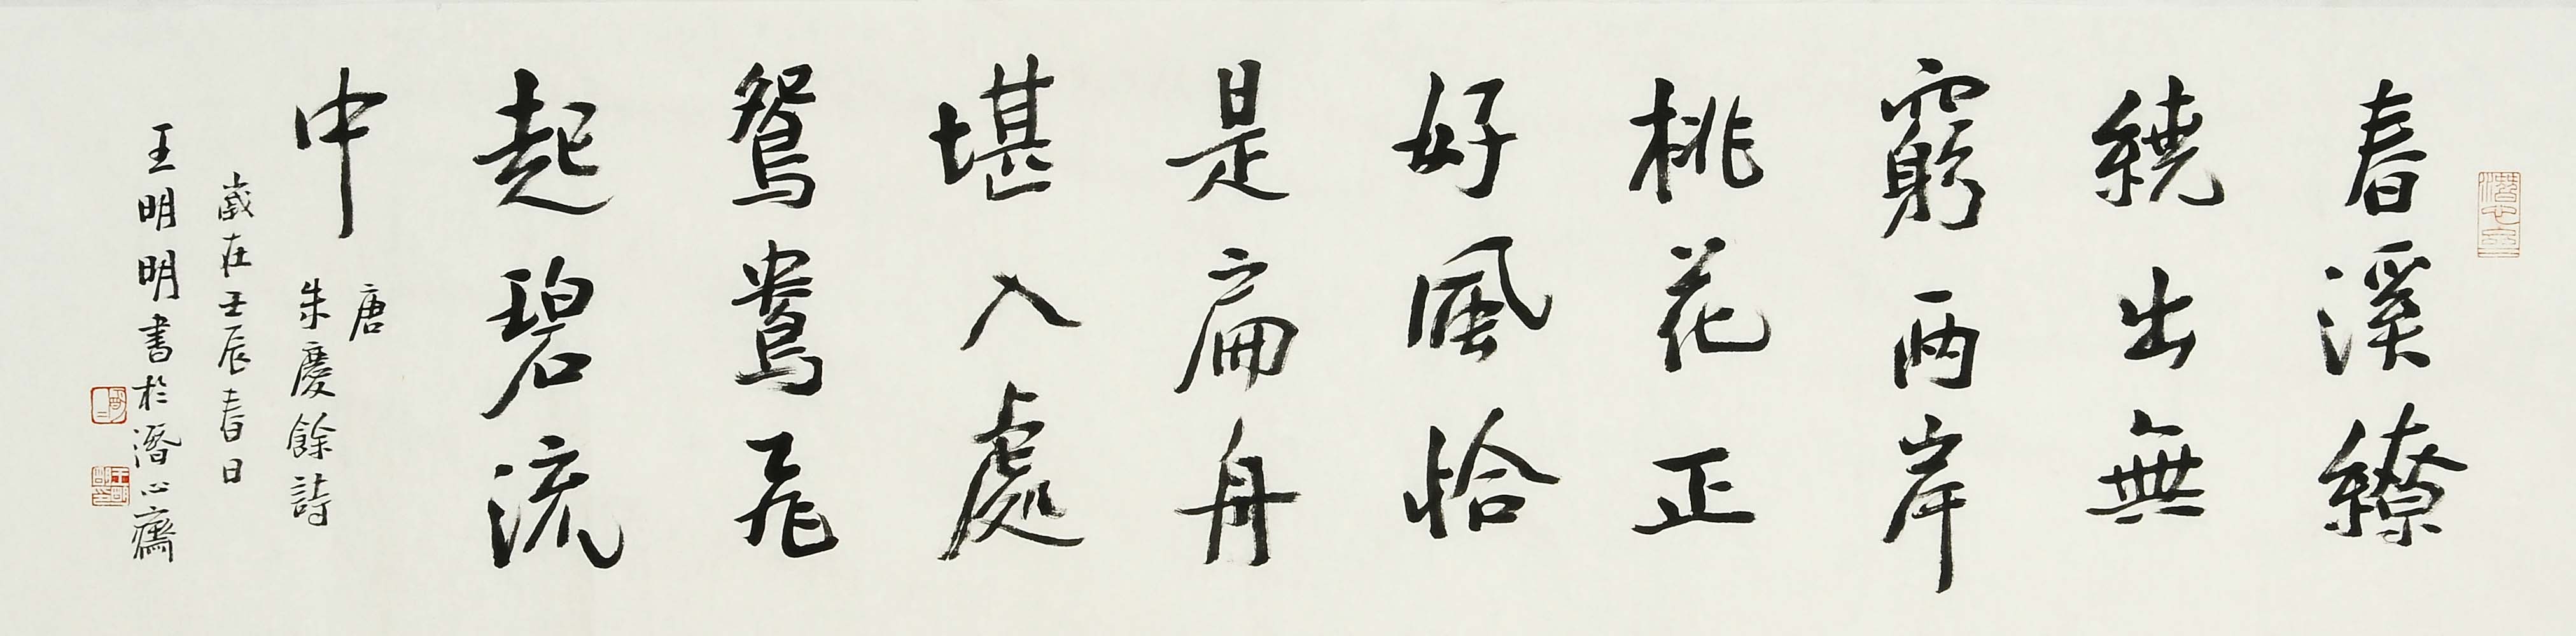 春溪繚
繞出無
窮兩岸
桃花正
好風恰
是扁舟
堪入處
鴛鴦飛
起碧流
中
唐
朱慶餘詩
歲在壬辰春日
王明明書於潛心齋